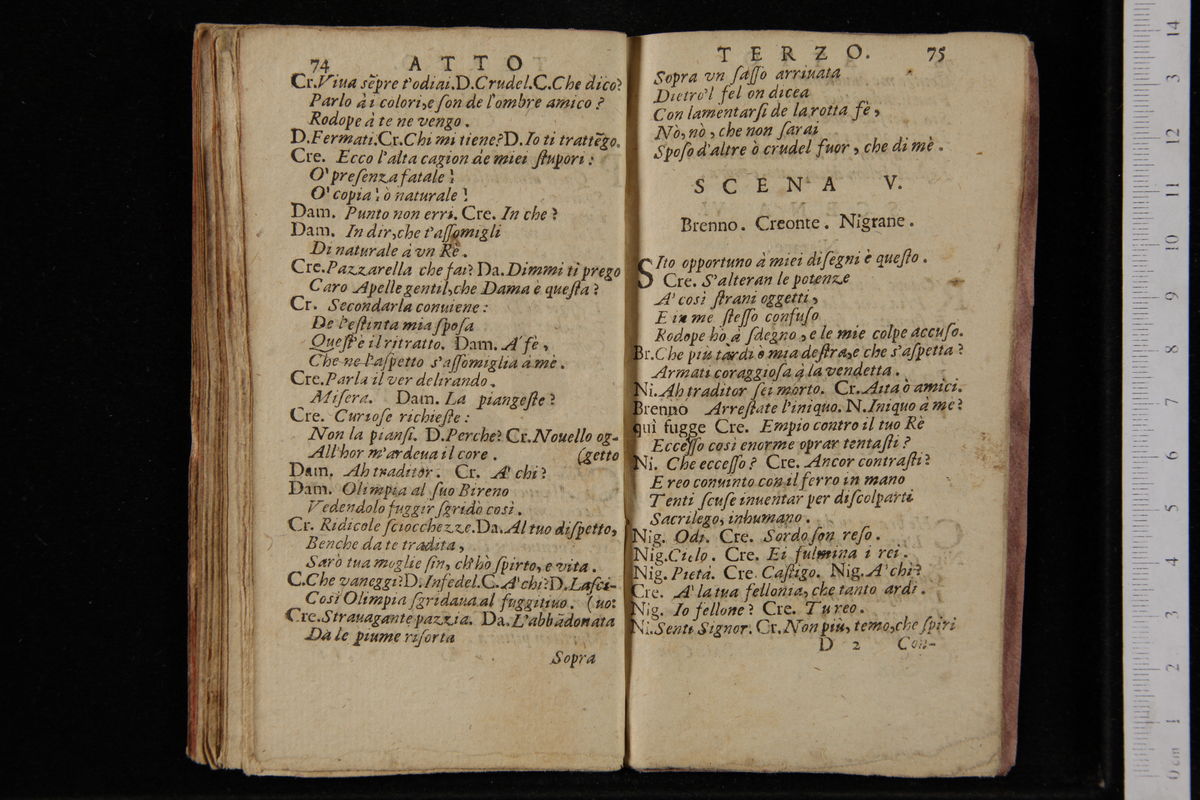 74 ATTO
Cr.Viua sẽpre t'odiai.D.Crudel.C.Che dico?
Parlo à i colori,e son de l'ombre amico?
Rodope à te ne vengo.
D.Fermati.Cr.Chi mi tiene?D.Io ti trattẽgo.
Cre. Ecco l'alta cagion de miei stupori:
O' presenza fatale!
O' copia! ò naturale!
Dam. Punto non erri. Cre. In che?
Dam. In dir,che t'assomigli
Di naturale à vn Rè.
Cre.Pazzarella che fai? Da.Dimmi ti prego
Caro Apelle gentil,che Dama è questa?
Cr. Secondarla conuiene:
De l'estinta mia sposa
Quest'è il ritratto. Dam. A' fè,
Che ne l'aspetto s'assomiglia a mè.
Cre.Parla il ver delirando.
Misera. Dam. La piangeste?
Cre. Curiose richieste:
Non la piansi. D.Perche? Cr.Nouello og-
All'hor m'ardeua il core. (getto
Dam. Ah traditor. Cr. A' chi?
Dam. Olimpia al suo Bireno
Vedendolo fuggir sgridò così.
Cr. Ridicole sciocchezze.Da.Al tuo dispetto,
Benche da te tradita,
Sarò tua moglie sin, ch'hò spirto, e vita.
C.Che vaneggi?D.Infedel.C.A' chi?D.Lasci-
Così Olimpia sgridaua al fuggitiuo. (uo:
Cre.Strauagante pazzia. Da.L'abbãdonata
Da le piume risorta
Sopra
TERZO. 75
Sopra vn sasso arriuata
Dietro'l fel on dicea
Con lamentarsi de la rotta fè,
Nò, nò, che non sarai
Sposo d'altre ò crudel fuor, che di mè.
SCENA V.
Brenno. Creonte. Nigrane.
SIto opportuno à miei disegni è questo.
Cre. S'alteran le potenze
A' così strani oggetti,
E in me stesso confuso
Rodope hò à sdegno, e le mie colpe accuso.
Br.Che più tardi o mia destra,e che s'aspetta?
Armati coraggiosa à la vendetta.
Ni.Ah traditor sei morto. Cr.Aita ò amici.
Brenno Arrestate l'iniquo. N.Iniquo à me?
quì fugge Cre. Empio contro il tuo Rè
Eccesso così enorme oprar tentasti?
Ni. Che eccesso? Cre. Ancor contrasti?
E reo conuinto con il ferro in mano
Tenti scuse inuentar per discolparti
Sacrilego, inhumano.
Nig. Odi. Cre. Sordo son reso.
Nig.Cielo. Cre. Ei fulmina i rei.
Nig. Pietà. Cre. Castigo. Nig. A' chi?
Cre. A' la tua fellonia, che tanto ardì.
Nig. Io fellone? Cre. Tu reo.
Ni.Senti Signor. Cr.Non più, temo,che spiri
D 2 Con-